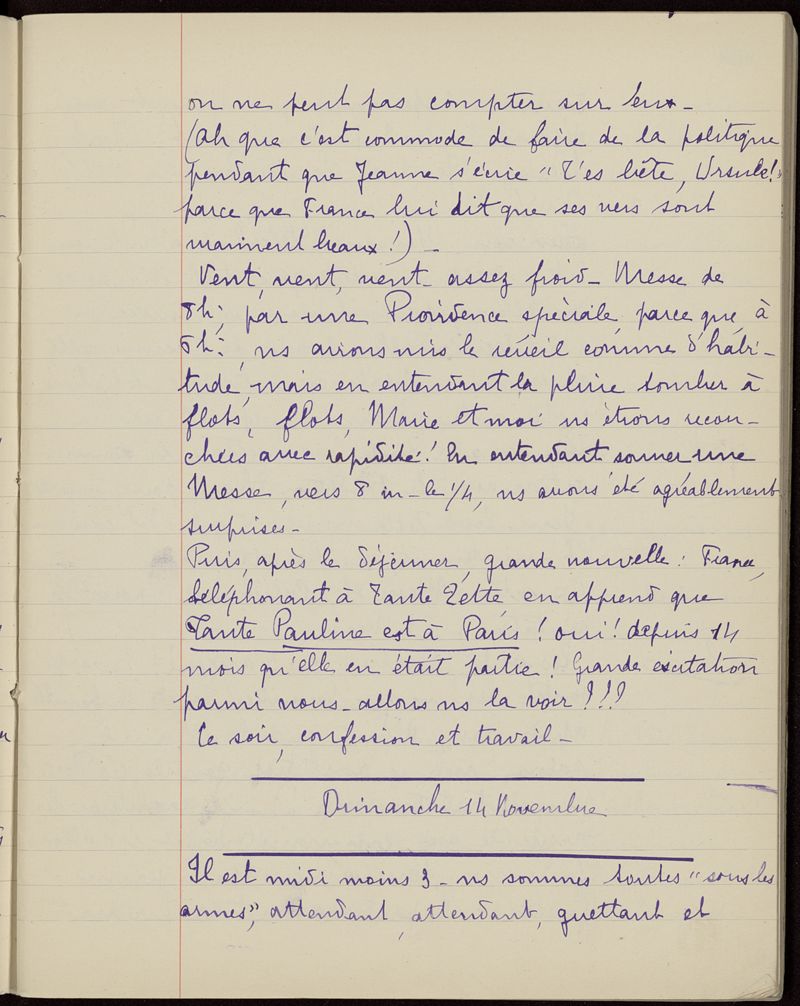 on ne peut pas compter sur eux -
(Ah que c'est commode de faire de la politique
pendant que Jeanne s'écrie "T'es bête, Ursule!"
parce que France lui dit que ses vers sont
vraiment beaux!) -
Vent, vent, vent - assez froid - Messe de
8h ; par une Providence spéciale, parce que, à
6h , ns avions mis le réveil comme d'habi-
tude, mais en entendant la pluie tomber à
flots, flots, Marie et moi ns étions recou-
chées avec rapidité! En entendant sonner une
Messe, vers 8 m- le 1/4, ns avons été agréablement
surprises -
Puis, après le déjeuner, grande nouvelle : France,
téléphonant à Tante Zette, en apprend que
Tante Pauline est à Paris ! oui ! depuis 14
mois qu'elle en était partie ! Grande excitation
parmi nous - allons ns la voir ???
Ce soir, confession et travail -
Dimanche 14 Novembre
Il est midi moins 3 - ns sommes toutes "sous les
armes", attendant, attendant, guettant et